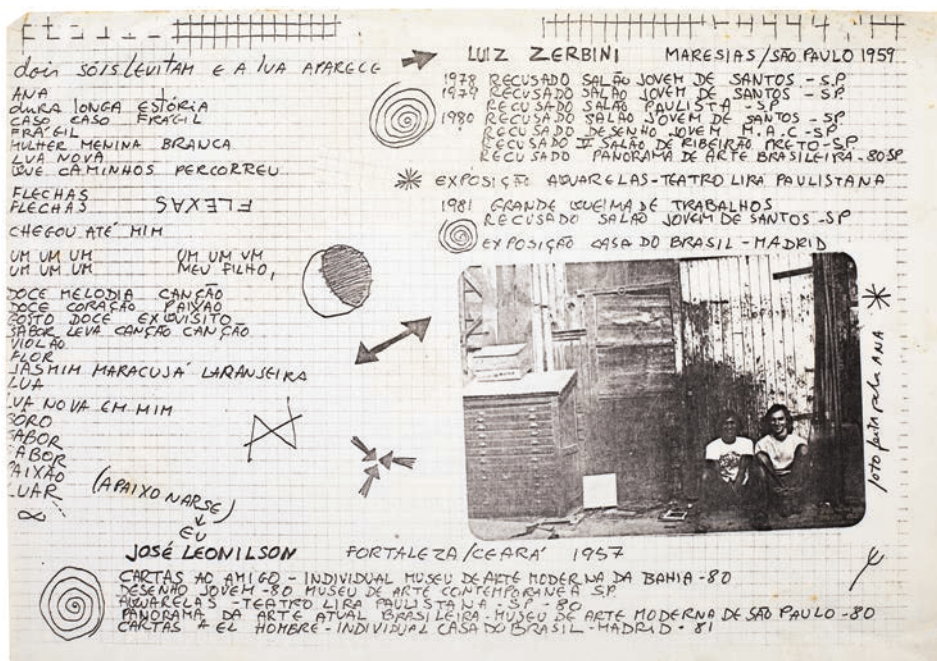 dois sóis levitam e a lua aparece
ANA
DURA LONGA ESTÓRIA
CASO CASO FRÁGIL
FRÁGIL
MULHER MENINA BRANCA
LUA NOVA
QUE CAMINHOS PERCORREU
FLECHAS
FLECHAS FLEXAS
CHEGOU ATÉ MIM
UM UM UM UM UM UM
UM UM UM MEU FILHO,
DOCE MELODIA CANÇÃO
DOCE CORAÇÃO PAIXÃO
GOSTO DOCE EXQUISITO
SABOR LEVA CANÇÃO CANÇÃO
VIOLÃO
FLOR
JASMIM MARACUJÁ LARANJEIRA
LUA
LUA NOVA EM MIM
ÔRO
ABOR
ABOR
AIXÃO
LUAR
(APAIXONARSE)
EU
LUIZ ZERBINI MARESIAS/SÃO PAULO 1959
1978 RECUSADO SALÃO JOVEM DE SANTOS - S.P.
1979 RECUSADO SALÃO JOVEM DE SANTOS - S.P.
RECUSADO SALÃO PAULISTA - S.P.
1980 RECUSADO SALÃO JOVEM DE SANTOS - SP
RECUSADO DESENHO JOVEM M.A.C - SP
RECUSADO V SALÃO DE RIBEIRÃO PRETO - S.P.
RECUSADO PANORAMA DE ARTE BRASILEIRA - 80 SP
EXPOSIÇÃO AQUARELAS - TEATRO LIRA PAULISTANA
1981 GRANDE QUEIMA DE TRABALHOS
RECUSADO SALÃO JOVEM DE SANTOS - SP
EXPOSIÇÃO CASA DO BRASIL - MADRID
foto feita pela ANA
JOSÉ LEONILSON FORTALEZA/CEARÁ 1957
CARTAS AO AMIGO - INDIVIDUAL MUSEU DE ARTE MODERNA DA BAHIA - 80
DESENHO JOVEM - 80 MUSEU DE ARTE CONTEMPORANEA S.P.
AQUARELAS - TEATRO LIRA PAULISTANA - SP - 80
PANORAMA DA ARTE ATUAL BRASILEIRA - MUSEU DE ARTE MODERNA DE SÃO PAULO - 80
CARTAS A EL HOMBRE - INDIVIDUAL CASA DO BRASIL - MADRID - 81